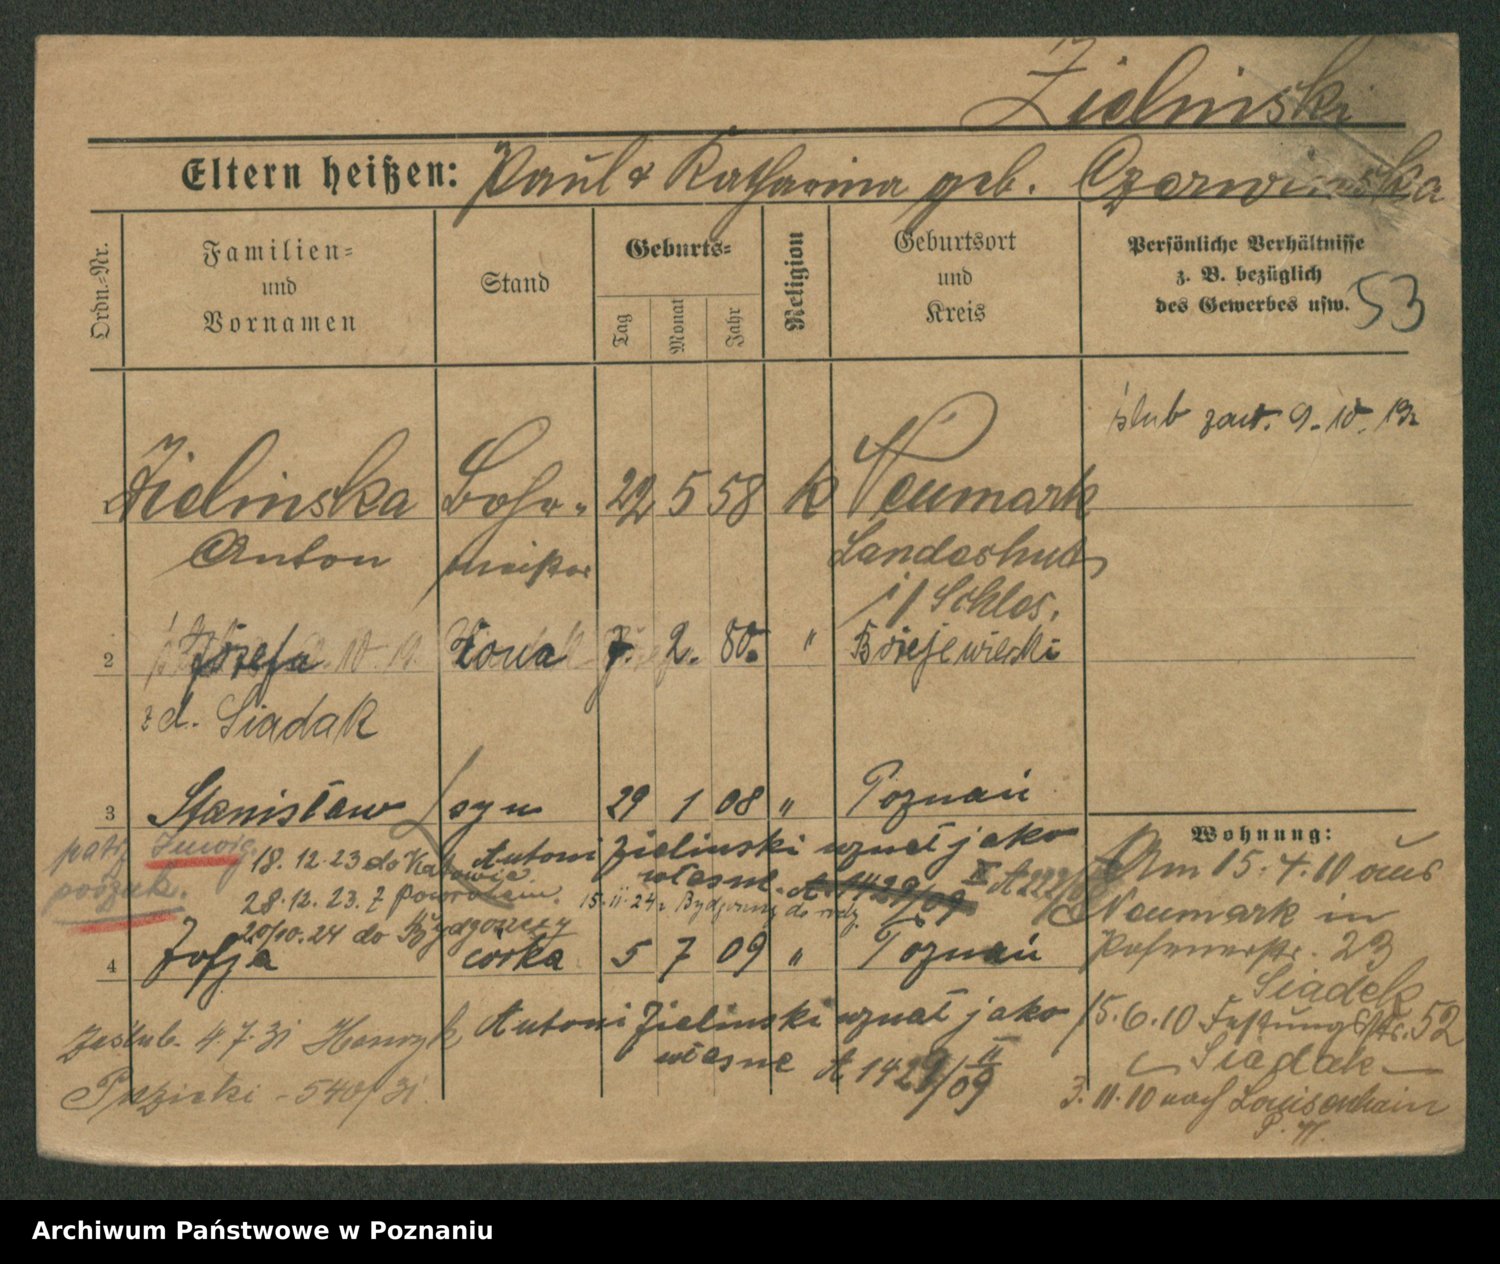 Zielinski
Eltern heißen: Paul & Katharina geb. Czerwinska
Ordn.-Nr.
Familien-
und
Vornamen
Stand
Geburts-
Tag
Monat
Jahr
Religion
Geburtsort
und
Kreis
Persönliche Verhältnisse
z. B. bezüglich
des Gewerbes usw.
53
ślub zaw. 9. 10. 13
Zielinska Bohr- 22 5 58 k Neumark
Anton meister Landeshut
i/ Schles.
2 Józefa żona 7. 2. 80. "
zd. Siadak
3 Stanisław syn 29 1 08 " Poznań
Wohnung:
patrz
poszuk.
18. 12. 23 do Katowic
Antoni Zielinski uznał jako
własne
28. 12. 23. z powrotem. 15.11.24 z Bydgoszcz do
20/10.24 do Bydgoszczy
Am 15.4.10 aus
Neumark in
23
Siadek
4 Zofja córka 5 7 09 " Poznań
Antoni Zielinski uznał jako
własne A 1429/09 II
15.6.10 Festungsstr. 52
Siadak
Zaślub. 4.7.31 Henryk
540/31.
3.11.10 nach Louisenhain
P. W.
Archiwum Państwowe w Poznaniu